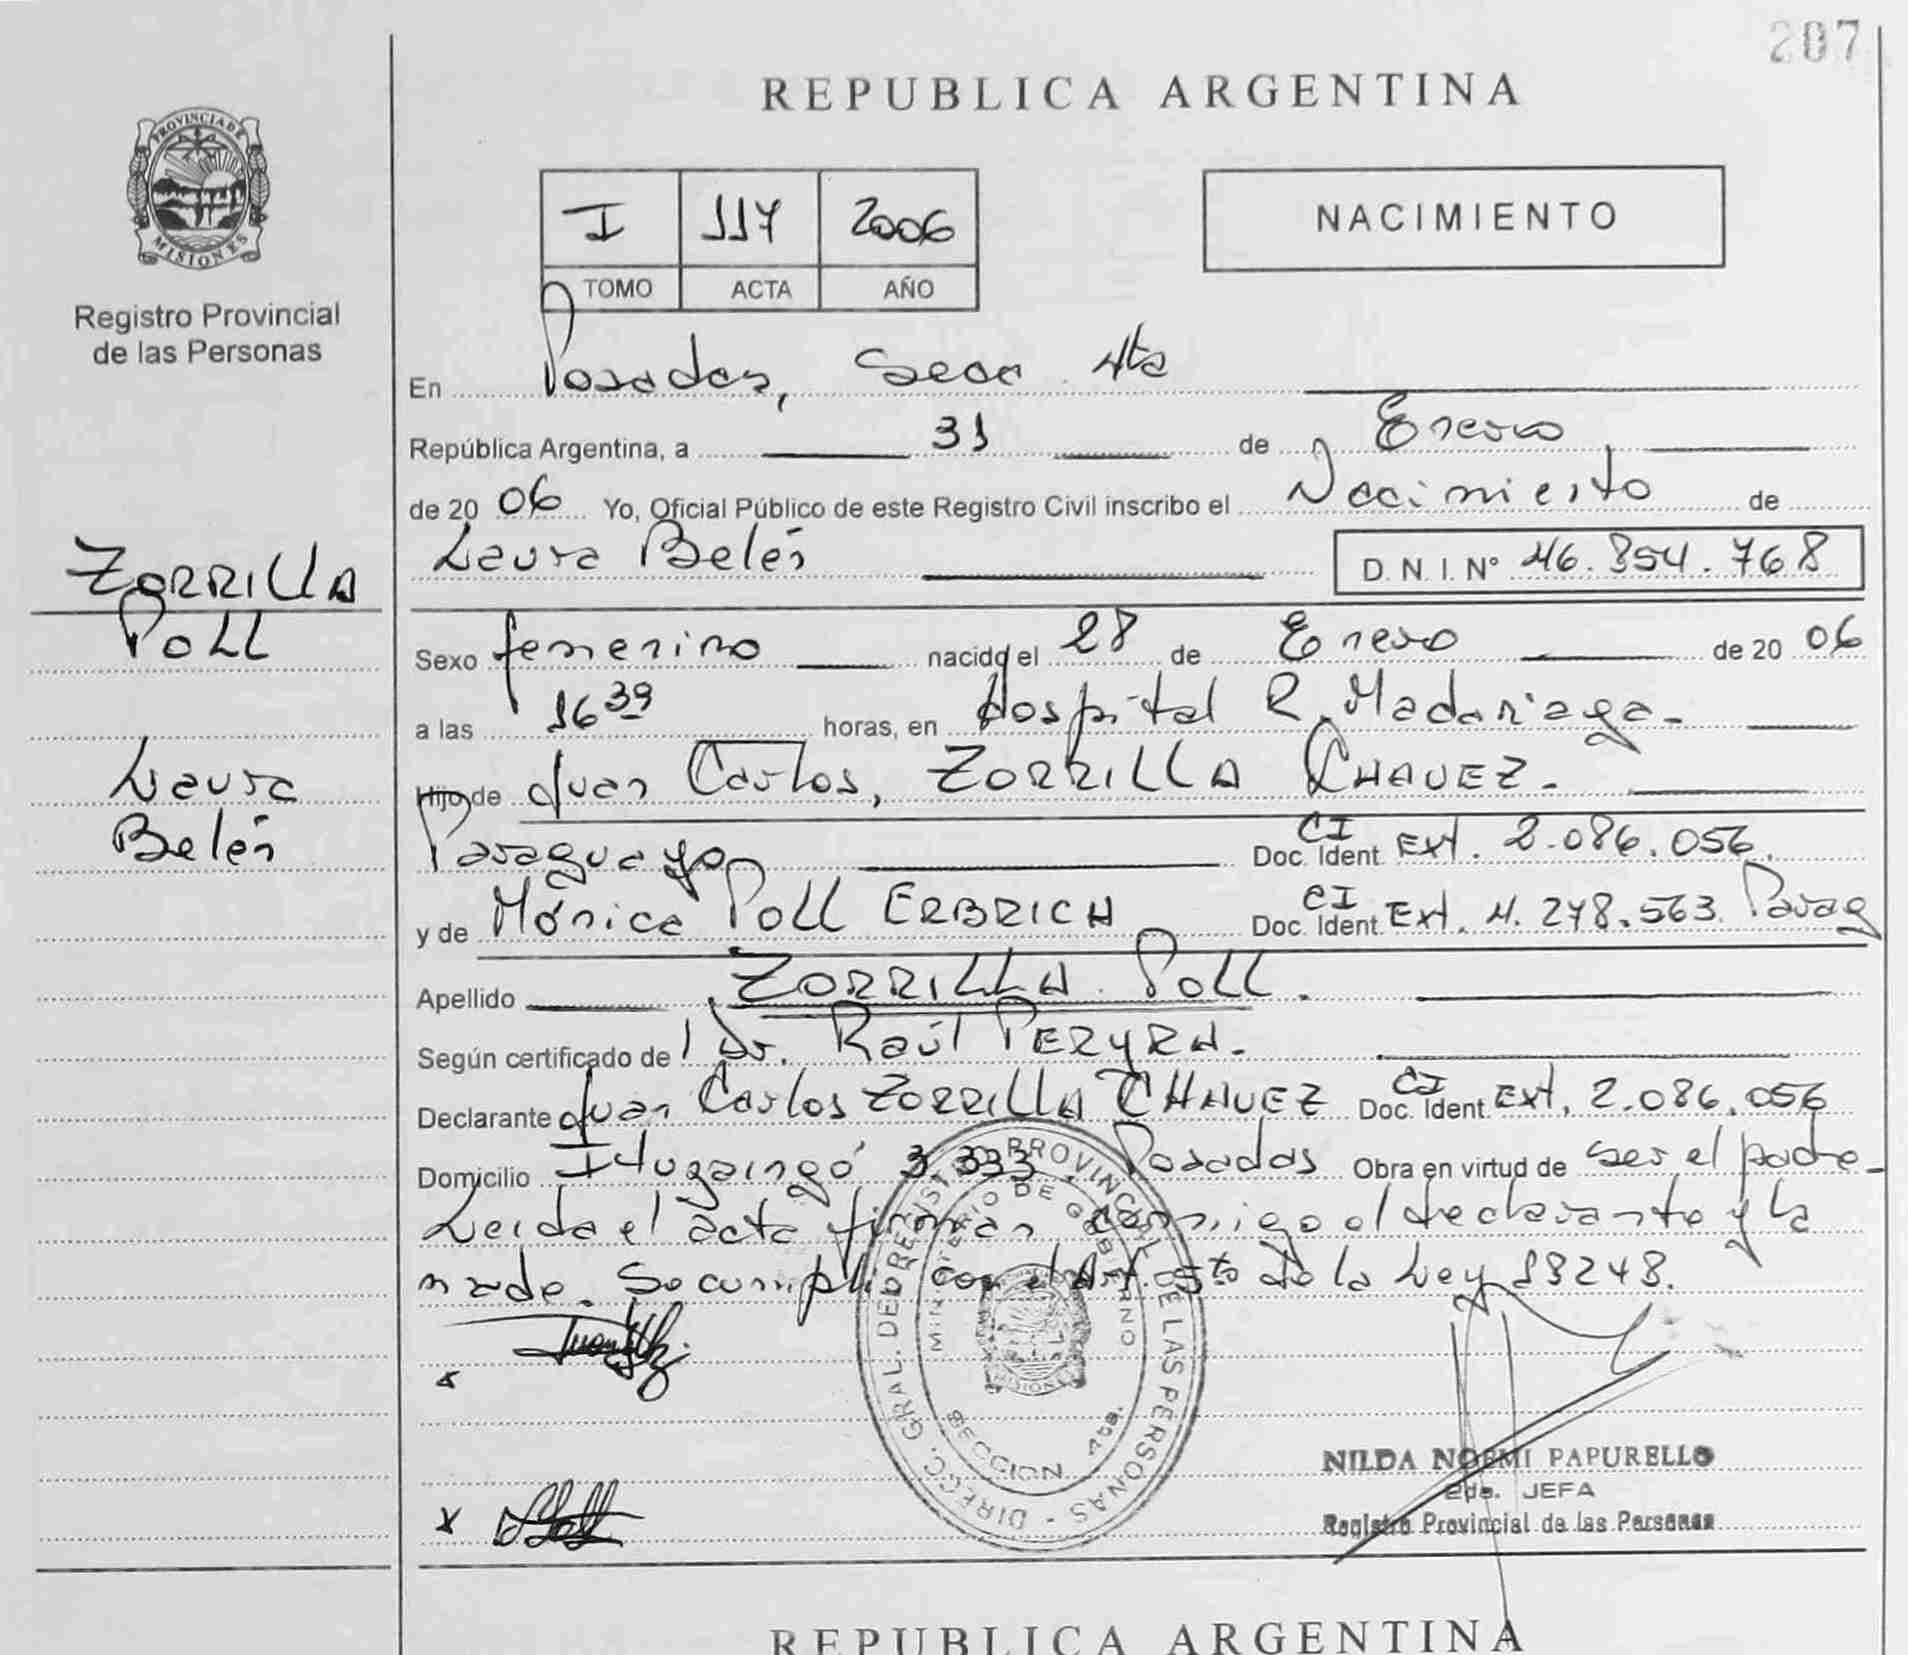 207
REPUBLICA ARGENTINA
PROVINCIA DE MISIONES
Registro Provincial
de las Personas
I 117 2006
TOMO ACTA AÑO
NACIMIENTO
En Posadas, Secc 4ta
República Argentina, a 31 de Enero
de 20 06 Yo, Oficial Público de este Registro Civil inscribo el Nacimiento de
Laura Belén D.N.I. Nº 46.854.768
ZORRILLA
POLL
Laura
Belén
Sexo femenino nacido el 28 de Enero de 20 06
a las 16 39 horas, en Hospital R. Madariaga.
Hijo de Juan Carlos, ZORRILLA CHAVEZ.
Paraguayo Doc. Ident CI Ext. 2.086.056.
y de Mónica POLL ERBRICH Doc. Ident. CI Ext. 4.248.563. Parag
Apellido ZORRILLA POLL.
Según certificado de l Dr. Raúl PERYRA.
Declarante Juan Carlos ZORRILLA CHAVEZ Doc. Ident. CI Ext. 2.086.056
Domicilio Ituzaingó 3.333. Posadas Obra en virtud de ser el padre.
Leida el acta firman conmigo el declarante y la
madre. Se cumplió con el Art. 5to de la Ley 18248.
DIRECC. GRAL. DEL REGISTRO PROVINCIAL DE LAS PERSONAS
MINISTERIO DE GOBIERNO
SECCION 4ta.
NILDA NOEMI PAPURELLO
2da. JEFA
Registro Provincial de las Personas
REPUBLICA ARGENTINA